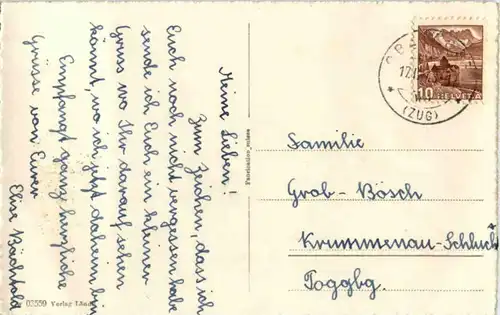 Meine Lieben!
Zum Zeichen, dass ich
Euch noch nicht vergessen habe
sende ich Euch ein kleiner
Gruss wo Ihr darauf sehen
könnt, wo ich jetzt daheim bin
Empfangt ganz herzliche
Grüsse von Eurer
Elise Bächtold
03559 Verlag
Fabrication suisse
10 HELVETIA
(ZUG)
Familie
Grob-Bösch
Krummenau-Schluch
Toggbg.